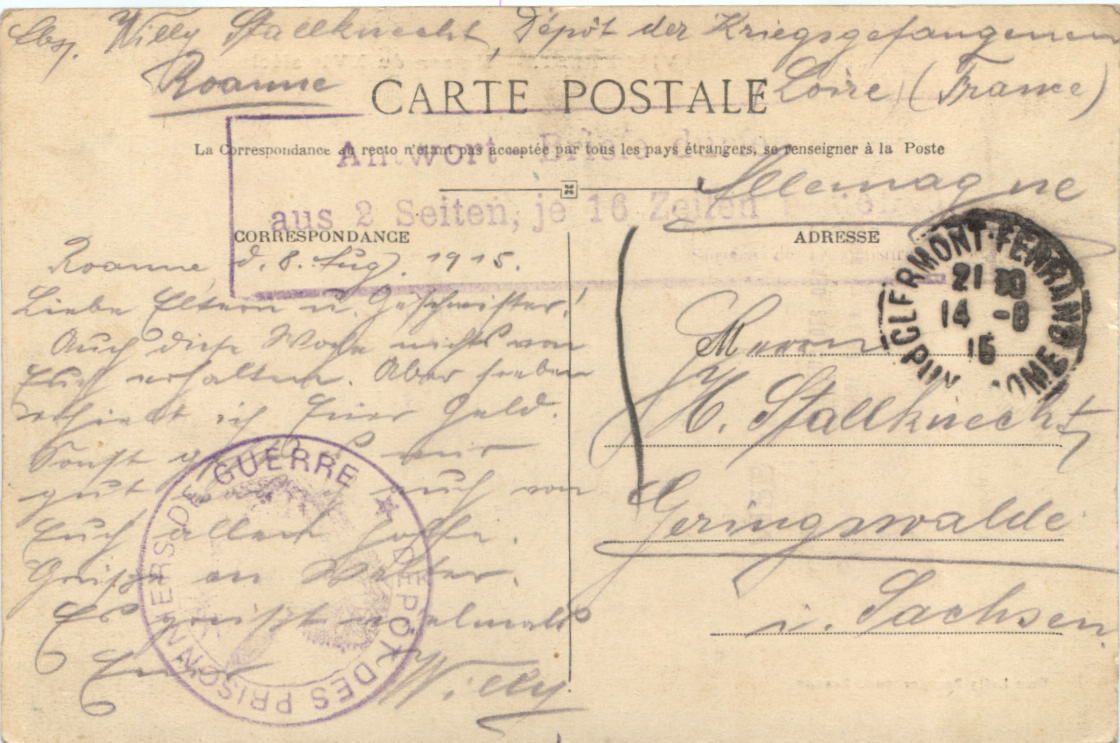 Abs. Willy Stallknecht, Dépôt der Kriegsgefangenen
Roanne Loire (France)
CARTE POSTALE
La Correspondance au recto n'étant pas acceptée par tous les pays étrangers, se renseigner à la Poste
Antwort Briefe
aus 2 Seiten, je 16 Zeilen
Allemagne
CORRESPONDANCE
Roanne d. 8. Aug. 1915.
Liebe Eltern u. Geschwister!
Auch diese Woche nichts von
Euch erhalten. Aber soeben
erhielt ich Euer Geld.
Sonst geht es mir
gut auch von
Euch allen hoffe.
Grüße an Walter.
Es grüßt vielmals
Euer Willy
DÉPÔT DES PRISONNIERS DE GUERRE
ADRESSE
CLERMONT-FERRAND
21 30
14 -8
15
PUY DOME
Herrn
H. Stallknecht,
Geringswalde
i. Sachsen